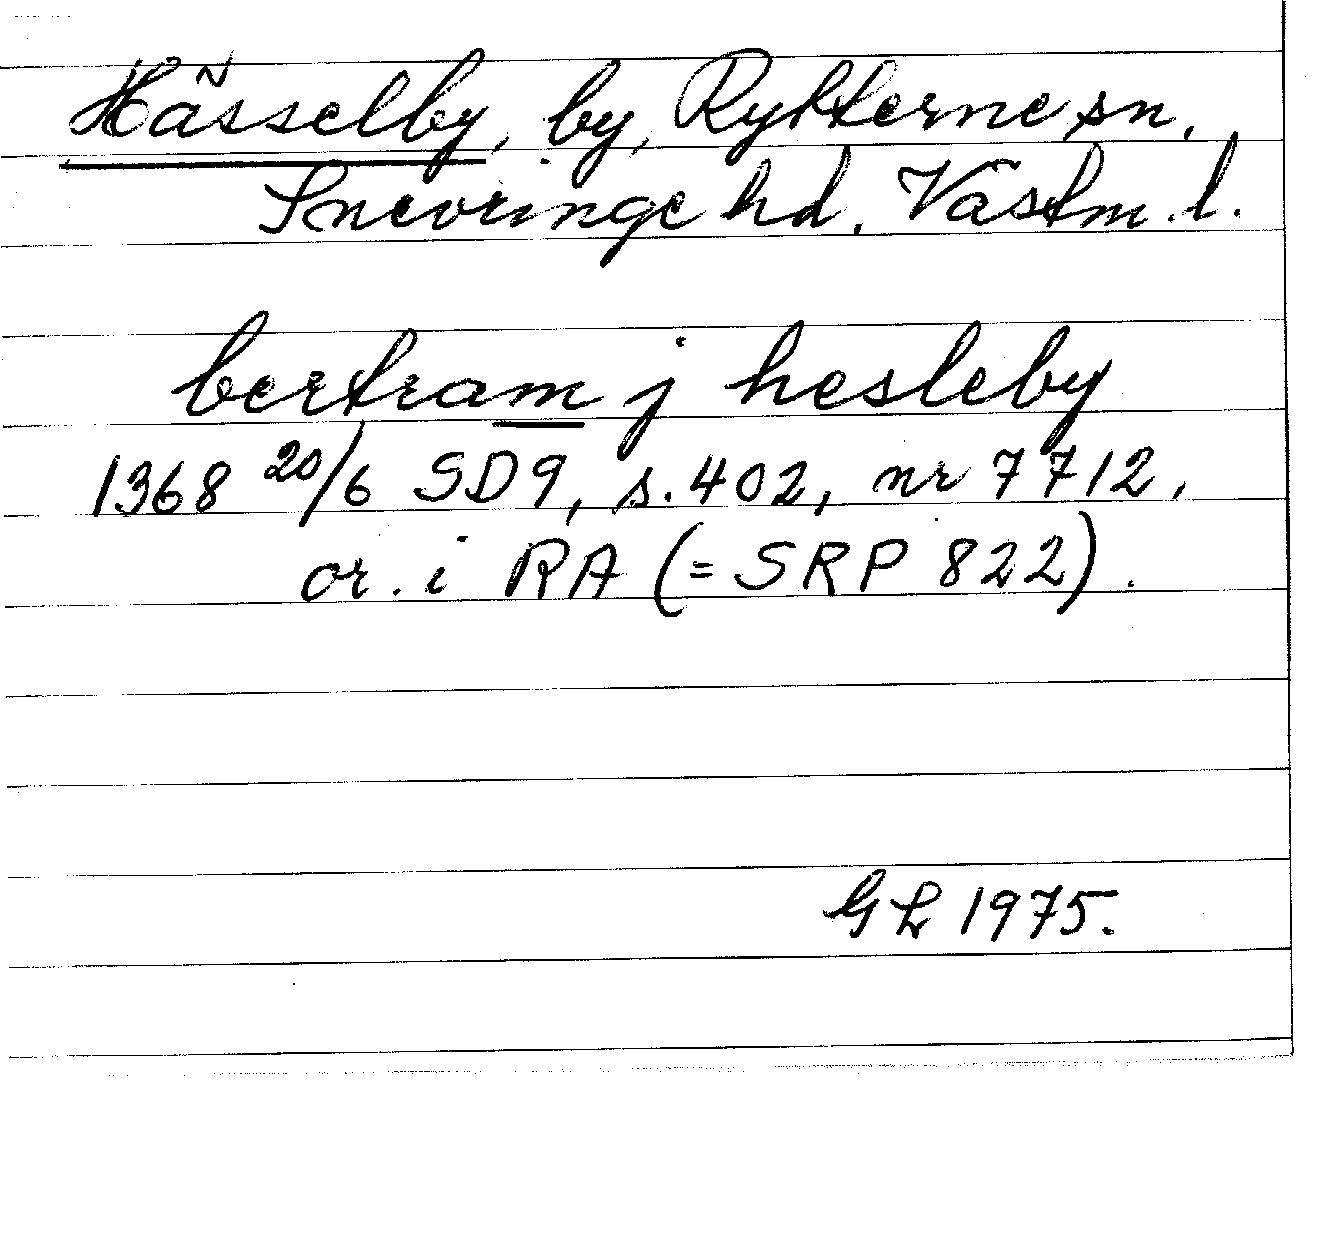 Hässelby, by, Rytterne sn.
Snevringe hd. Västm. l.
bertram j hesleby
1368 20/6 SD9, s. 402, nr 7712,
or. i RA (= SRP 822).
GL 1975.